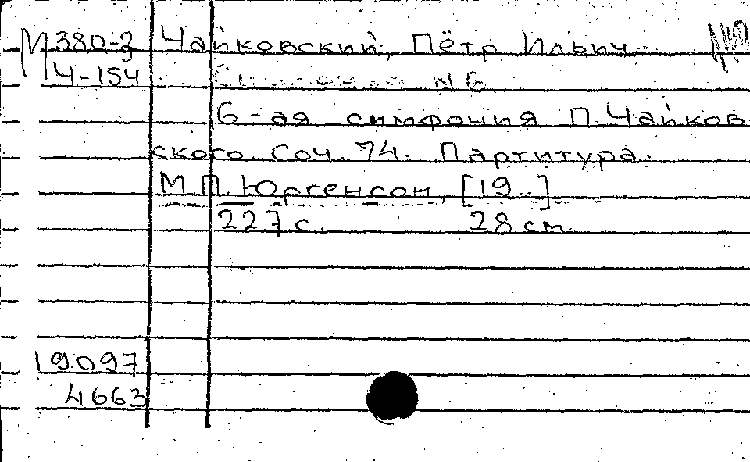 М380-3 Чайковский, Пётр Ильич.
Ч-154 № 6
6-ая симфония П. Чайков
ского. Соч. 74. Партитура.
М. П. Юргенсон, [19..]
227 с. 28 см.
19.097
4663